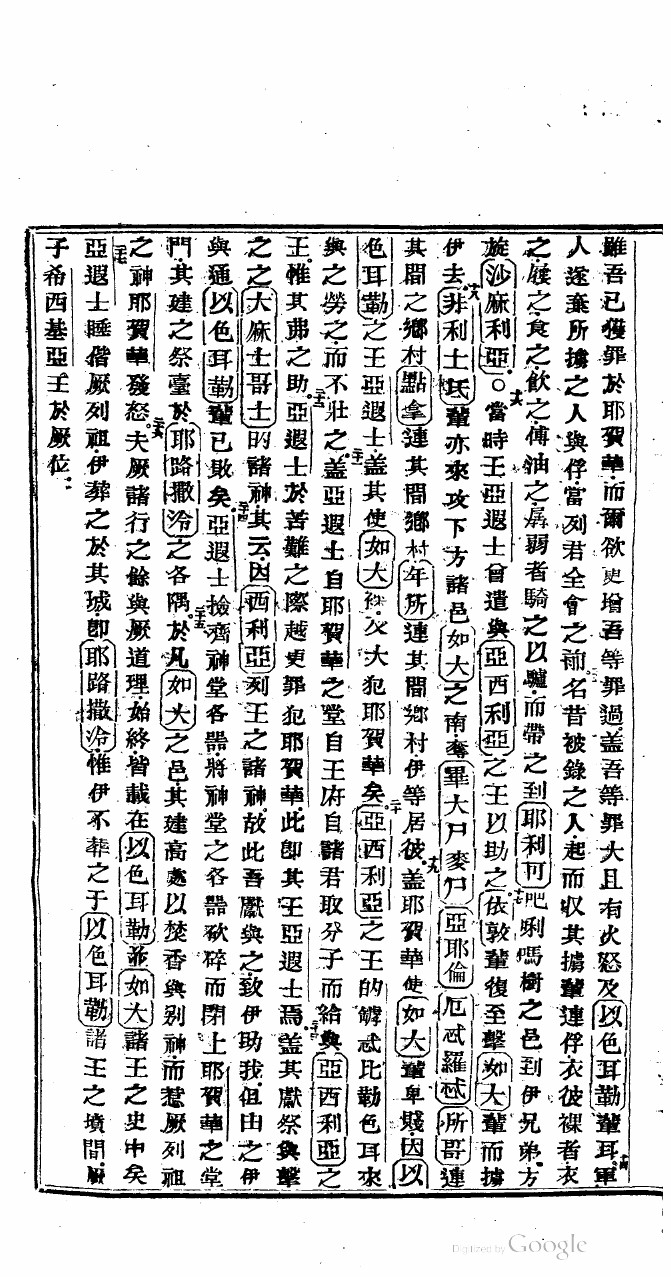 雖吾已獲罪於耶賀華而爾欲更增吾等罪過盖吾等罪大且有火怒及以色耳勒輩耳軍
十四
人遂棄所擄之人與俘當列君全會之前名昔被錄之人起而収其擄輩連俘衣彼裸者衣
之履之食之飲之傅油之孱弱者騎之以驢而帶之到耶利可吧唎嗎樹之邑到伊兄弟方
旋沙麻利亞○當時王亞遐士曾遣與亞西利亞之王以助之依敦輩復至擊如大輩而擄
伊去非利士氐輩亦來攻下方諸邑如大之南奪畢大尸麥尸亞耶倫厄忒羅忒所哥連
其間之鄉村點拿連其間鄉村年所連其間鄉村伊等居彼盖耶賀華使如大輩卑賤因以
色耳勒之王亞遐士盖其使如大裸及大犯耶賀華矣亞西利亞之王的鏬忒比勒色耳來
與之勞之而不壯之盖亞遐士自耶賀華之堂自王府自諸君取分子而給與亞西利亞之
王惟其弗之助亞遐士於苦難之際越更罪犯耶賀華此即其王亞遐士焉盖其獻祭與擊
之之大麻士哥士的諸神其云因西利亞列王之諸神故此吾獻與之致伊助我但由之伊
與通以色耳勒輩已敗矣亞遐士撿齊神堂各器將神堂之各器砍碎而閉上耶賀華之堂
門其建之祭臺於耶路撒冷之各隅於凡如大之邑其建高處以焚香與别神而惹厥列祖
之神耶賀華發怒夫厥諸行之餘與厥道理始終皆載在以色耳勒並如大諸王之史中矣
亞遐士睡偕厥列祖伊葬之於其城即耶路撒冷惟伊不葬之于以色耳勒諸王之墳間厥
子希西基亞王於厥位
Digitized by Google